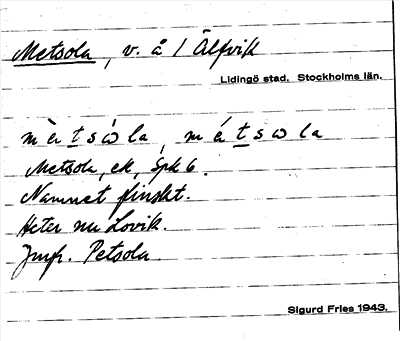 Metsola, v. å / Älfvik
Lidingö stad. Stockholms län.
mètsòla, métsωla
Metsola, ek, Spk 6.
Namnet finskt.
Heter nu Lovik.
Jmfr. Petsola
Sigurd Fries 1943.